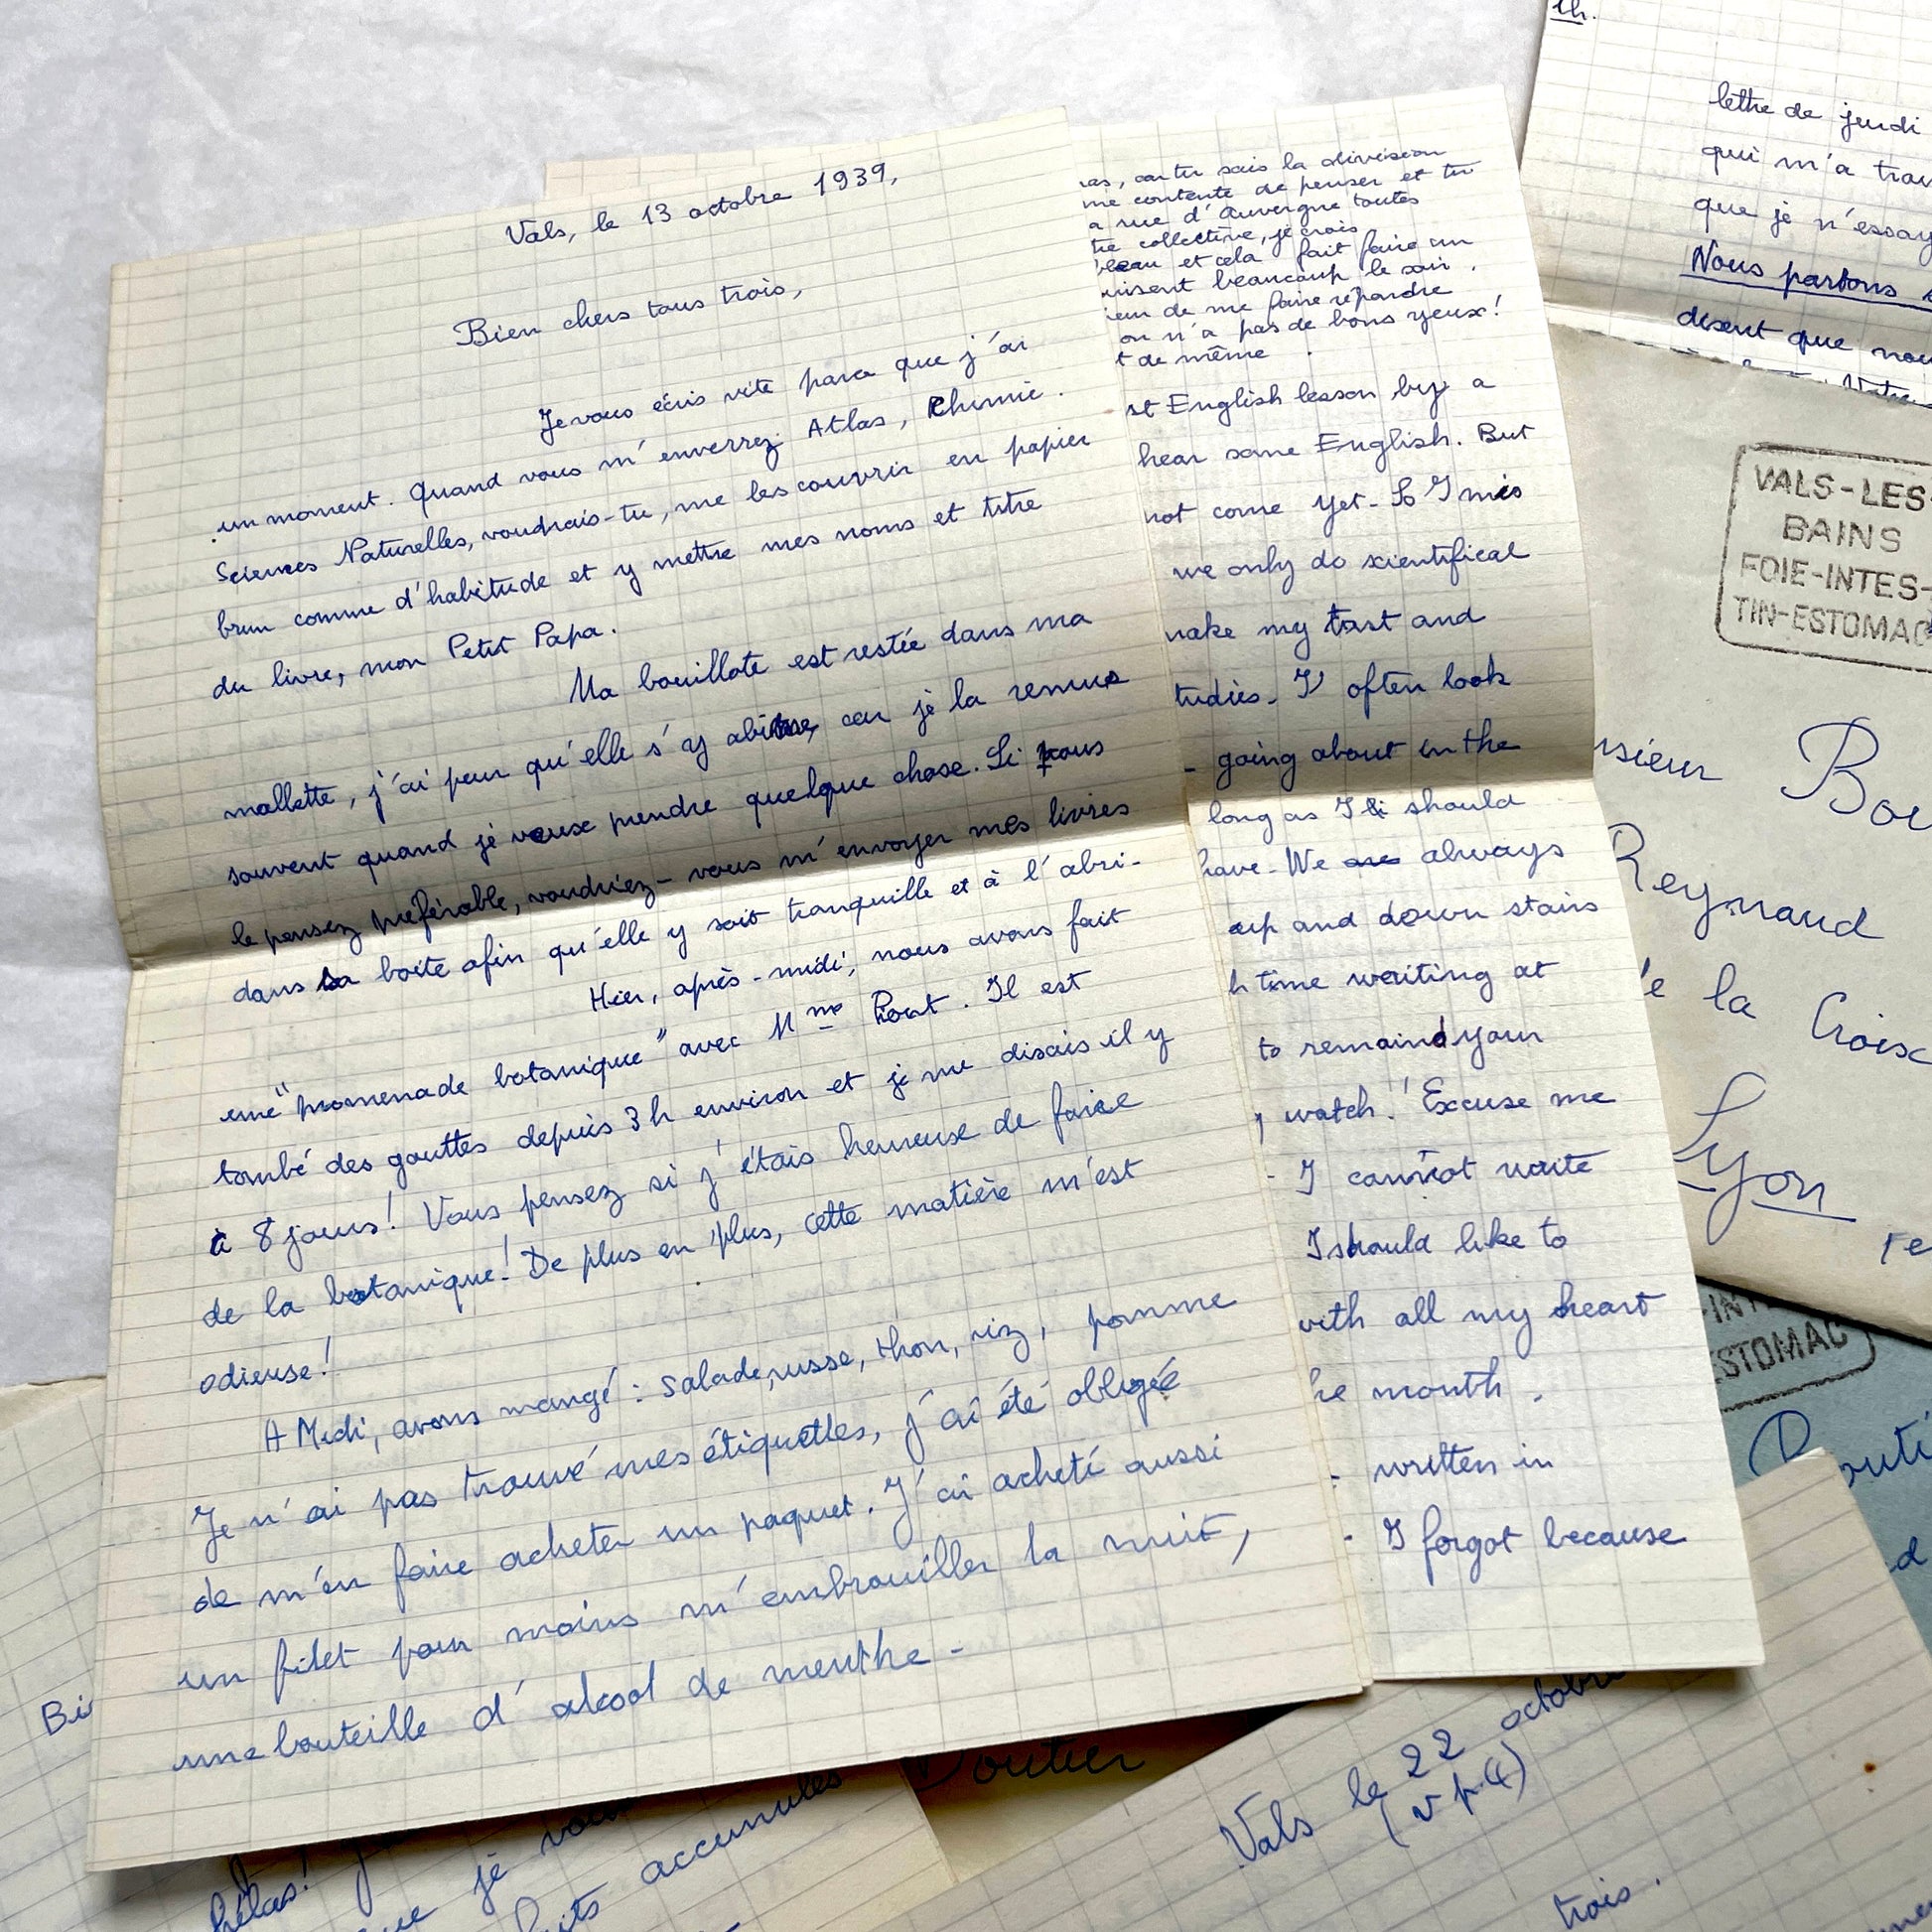 Vals, le 13 octobre 1939,
Bien chers tous trois,
Je vous écris vite parce que j'ai
un moment. Quand vous m'enverrez Atlas, Chimie.
Sciences Naturelles, voudrais-tu, me les couvrir en papier
brun comme d'habitude et y mettre mes noms et titre
du livre, mon Petit Papa.
Ma bouillote est restée dans ma
mallette, j'ai peur qu'elle s'y abîme, car je la remue
souvent quand je veux prendre quelque chose. Si vous
le pensez préférable, voudriez-vous m'envoyer mes livres
dans sa boîte afin qu'elle y soit tranquille et à l'abri-
Hier, après-midi, nous avons fait
une "promenade botanique" avec Mme. Il est
tombé des gouttes depuis 3 h environ et je me disais il y
à 8 jours! Vous pensez si j'étais heureuse de faire
de la botanique! De plus en plus, cette matière m'est
odieuse!
A Midi, avons mangé: salade, russe, thon, riz, pomme
Je n'ai pas trouvé mes étiquettes, j'ai été obligée
de m'en faire acheter un paquet. J'ai acheté aussi
un filet pour moins m'embrouiller la nuit,
une bouteille d'alcool de menthe-
as, car tu sais la division
me contente de penser et tu
a rue d'Auvergne toutes
tre collective, je crois
eau et cela fait faire un
uisent beaucoup le soir.
ien de me faire répondre
on n'a pas de bons yeux!
t de même.
st English lesson by a
hear some English. But
not come yet. So I mis
we only do scientifical
make my tast and
tudies. I often look
- going about in the
long as I should
have. We are always
up and down stairs
h time waiting at
to remaind your
y watch! Excuse me
- I cannot write
I should like to
with all my heart
he month.
- written in
- I forgot because
th.
lettre de jeudi
qui m'a trou
que je n'essay
Nous partons
disent que nou
VALS-LES-
BAINS
FOIE-INTES-
TIN-ESTOMAC
sieur Bou
Reynaud
de la Croix
Lyon
INT
ESTOMAC
Bouti
Bi
hélas!
que je vous
accumulés
Boutier
Vals le 22 octobre
(v p. 4)
trois.